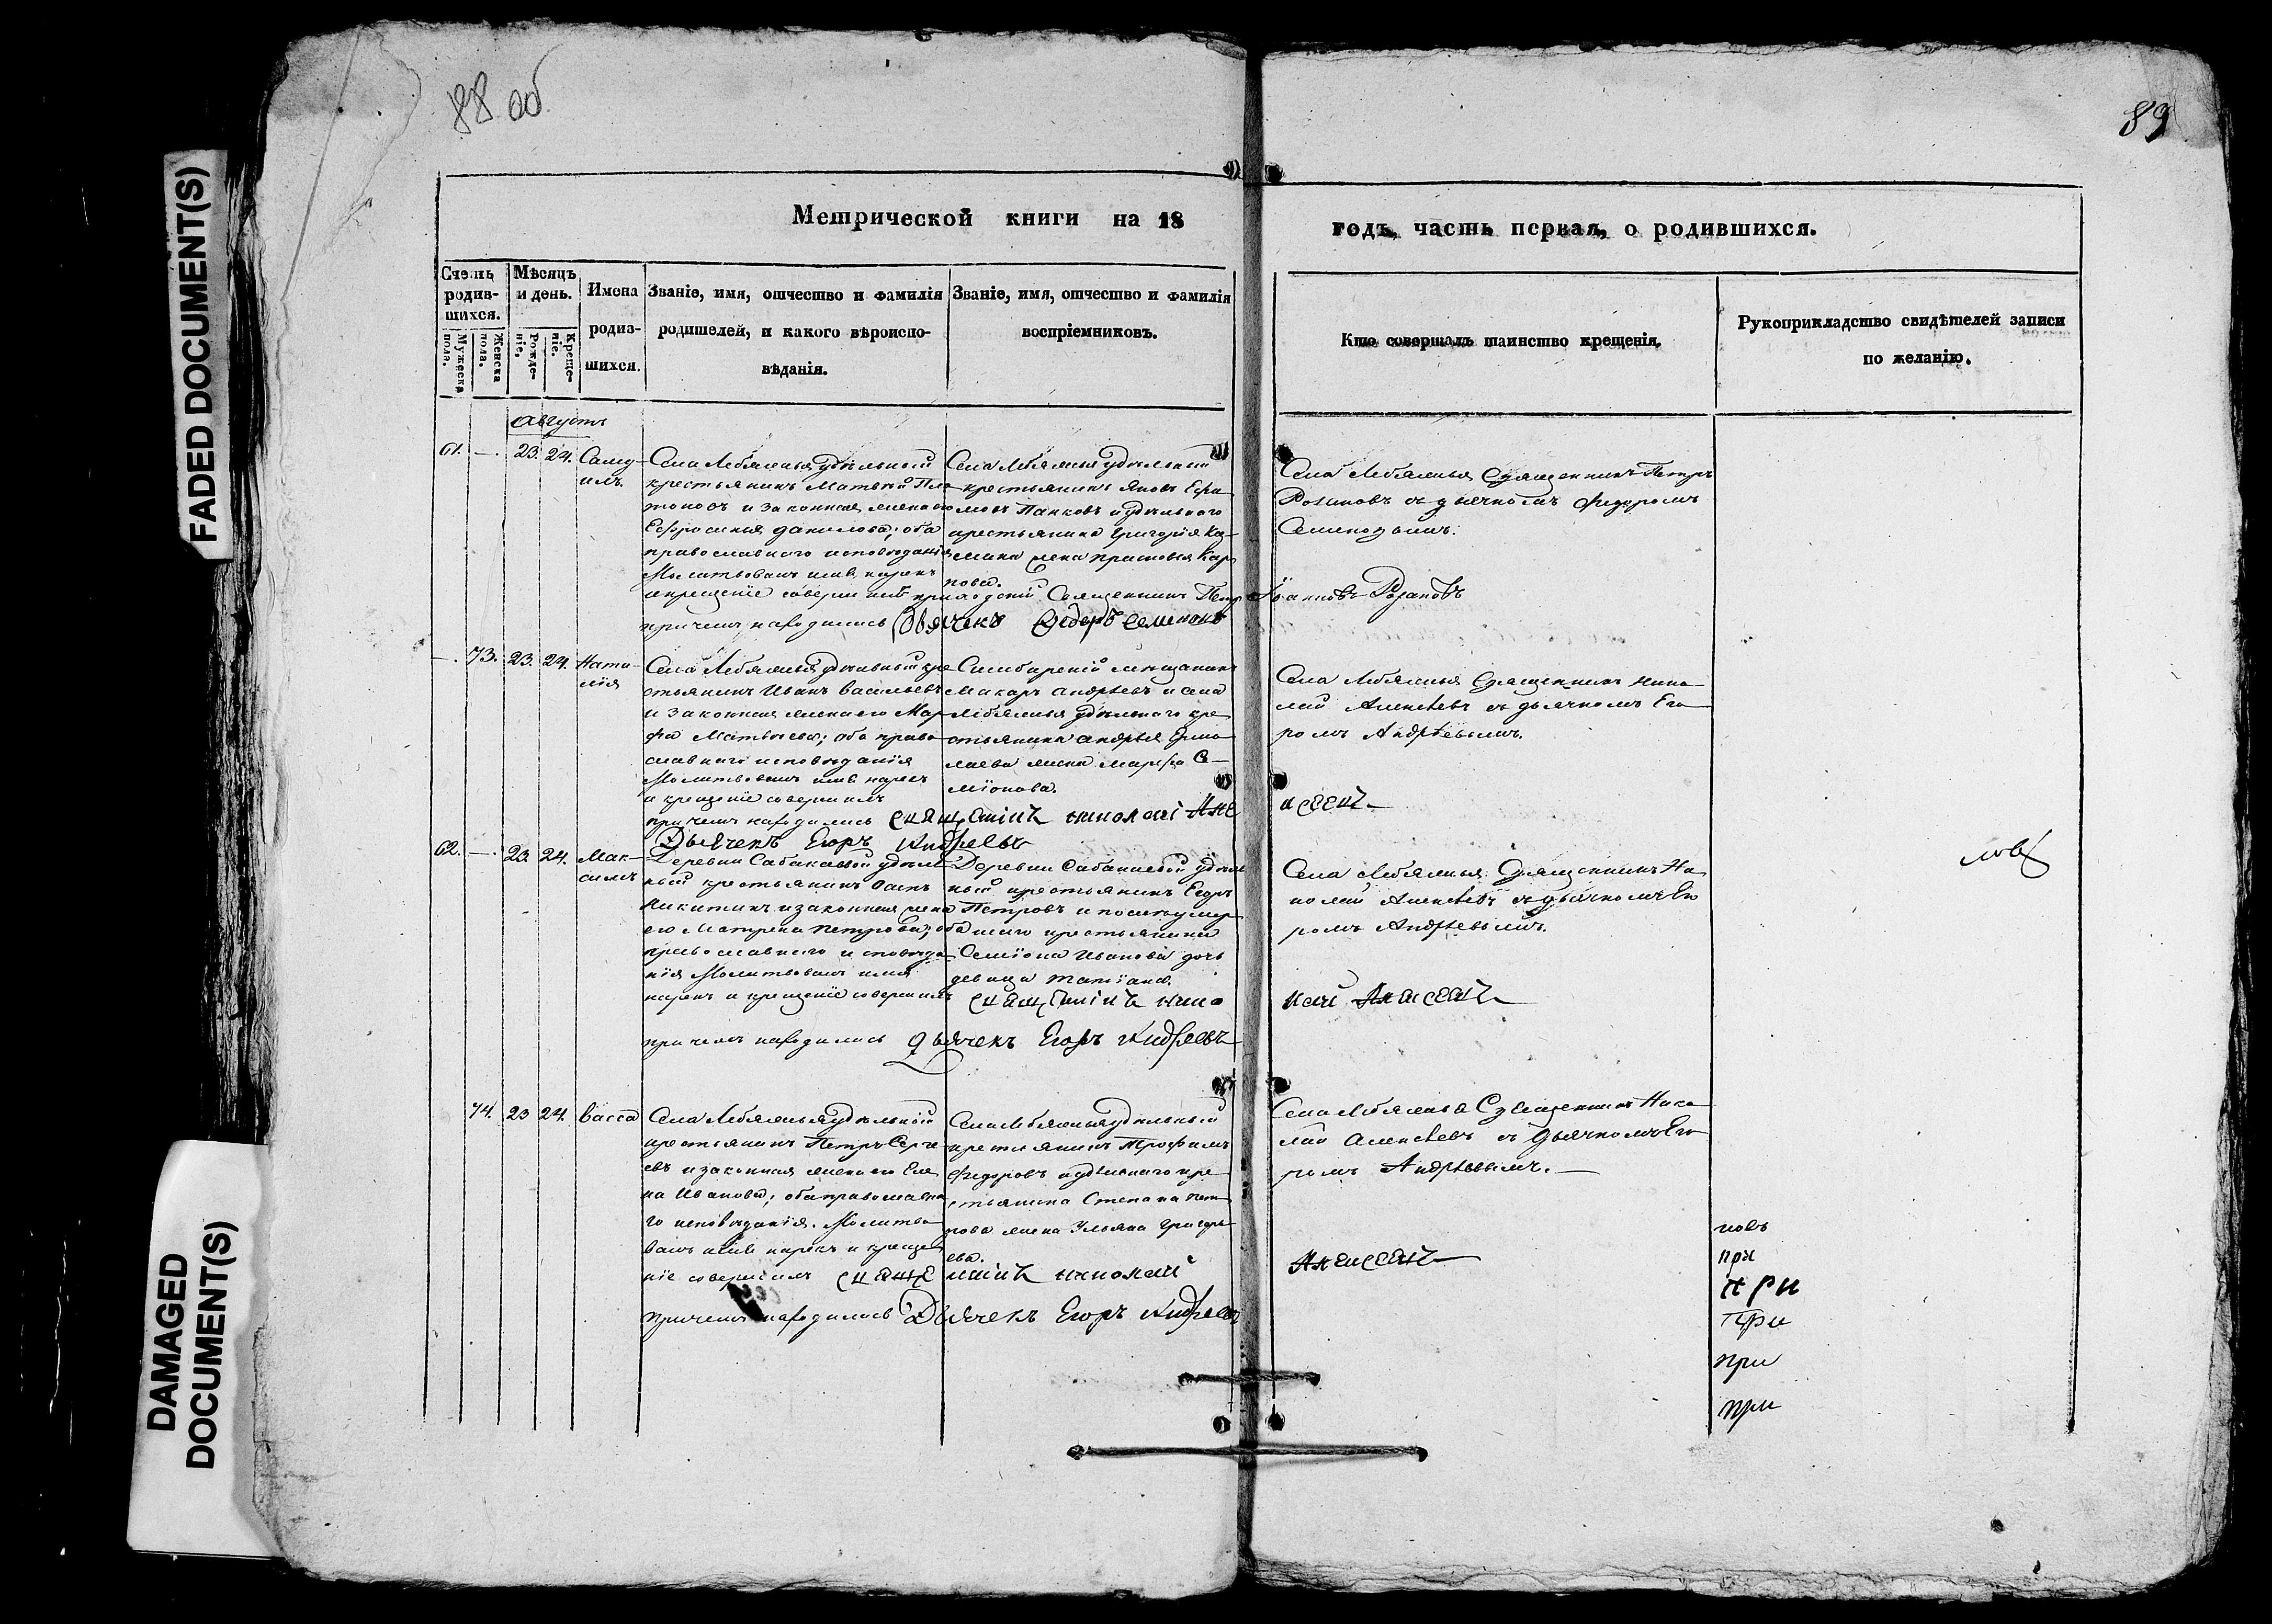 FADED DOCUMENT(S)
DAMAGED
DOCUMENT(S)
88 об
89
Метрической книги на 18
годъ, часть первая, о родившихся.
Счетъ
родив-
шихся.
Мужеска
пола.
Женска
пола.
Мѣсяцъ
и день.
Рожде-
ніе.
Креще-
ніе.
Имена
родив-
шихся.
Званіе, имя, отчество и фамилія
родителей, и какого вѣроиспо-
вѣданія.
Званіе, имя, отчество и фамилія
воспріемниковъ.
Кто совершалъ таинство крещенія.
Рукоприкладство свидѣтелей записи
по желанію.
Августъ
61. —. 23. 24. Саму-
илъ.
Села Лебяжья удѣльный
крестьянинъ Матвей Пла-
тоновъ и законная жена его
Ефросинья Данилова; оба
православного исповѣданія
Молитвовалъ имя нарекъ
и крещеніе совершилъ приходскій Священникъ Петръ Іоанновъ Розановъ
при чемъ находились Дьячекъ Ѳедоръ Семеновъ
Села Лебяжья удѣльный
крестьянинъ Яковъ Ефи-
мовъ Панковъ и удѣльного
крестьянина Григорія
жена Прасковья Кар
пова.
Села Лебяжья Священникъ Петръ
Розановъ съ дьячкомъ Федоромъ
Семеновымъ.
—. 73. 23. 24. Ната-
лія
Села Лебяжья удѣльный кре-
стьянинъ Иванъ Васильевъ
и законная жена его Мар-
фа Матвѣева; оба право-
славного исповѣданія
Молитвовалъ имя нарекъ
и крещеніе совершилъ
при чемъ находились священникъ Николай Але
ксеевъ
Дьячекъ Егоръ Андреевъ
Симбирскій мещанинъ
Макаръ Андреевъ и села
Лебяжья удѣльного кре
стьянина Андрея Ермо-
лаева жена Марфа Се-
міонова.
Села Лебяжья Священникъ Нико-
лай Алексеевъ съ дьячкомъ Его
ромъ Андреевымъ.
62. —. 23. 24. Мак-
симъ
Деревни Сабакаевой удѣль
ный крестьянинъ
Никитинъ и законная жена
его Матрена Петрова; оба
православного исповѣда-
нія Молитвовалъ имя
нарекъ и крещеніе совершилъ священникъ Нико
лай Алексеевъ
при чемъ находились дьячекъ Егоръ Андреевъ
Деревни Сабакаевой удѣль
ный крестьянинъ Егоръ
Петровъ и после умер
шаго крестьянина
Семіона Иванова дочь
девица Татіана.
Села Лебяжья Священникъ Ни
колай Алексеевъ съ дьячкомъ Его
ромъ Андреевымъ.
ловъ
74. 23 24. Васса
Села Лебяжья удѣльный
крестьянинъ Петръ Серге
евъ и законная жена его Еле
на Иванова; оба православна
го исповѣданія. Молитво
валъ имя нарекъ и креще
ніе совершилъ священникъ Николай
Алексеевъ
при чемъ находились Дьячекъ Егоръ Андреевъ
Села Лебяжья удѣльный
крестьянинъ Трофимъ
Федоровъ и удѣльного кре
стьянина Степана Пет
рова жена Ульяна Григорь
ева.
Села Лебяжья Священникъ Нико
лай Алексеевъ съ дьячкомъ Его
ромъ Андреевымъ.
новъ
при
при
при
при
при